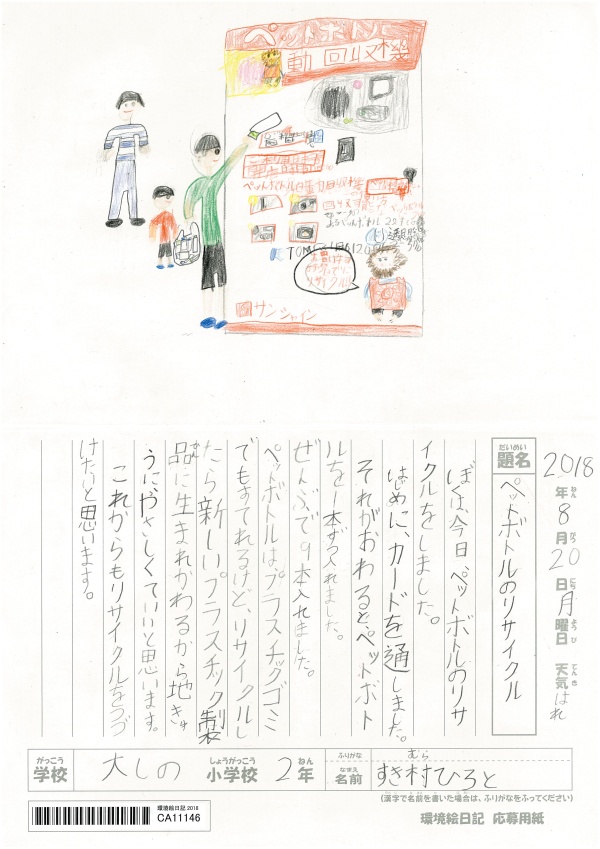 ペットボトル
動回収機
ペットボトル自動回収機
お買い物
リサイクル
サンシャイン
2018年8月20日月曜日 天気はれ
ねん
がつ
にち
ようび
てんき
だいめい
題名
ペットボトルのリサイクル
ぼくは、今日、ペットボトルのリサ
イクルをしました。
はじめに、カードを通しました。
それがおわると、ペットボト
ルを1本ずつ入れました。
ぜんぶで9本入れました。
ペットボトルは、プラスチックゴミ
でもすてれるけど、リサイクルし
たら新しいプラスチック製
品に生まれかわるから地きゅ
うにやさしくていいと思います。
これからもリサイクルをつづ
けたいと思います。
がっこう
学校
大しの
しょうがっこう
小学校
2
ねん
年
ふりがな
むら
なまえ
名前
すぎ村ひろと
(漢字で名前を書いた場合は、ふりがなをふってください)
環境絵日記2018
CA11146
環境絵日記 応募用紙